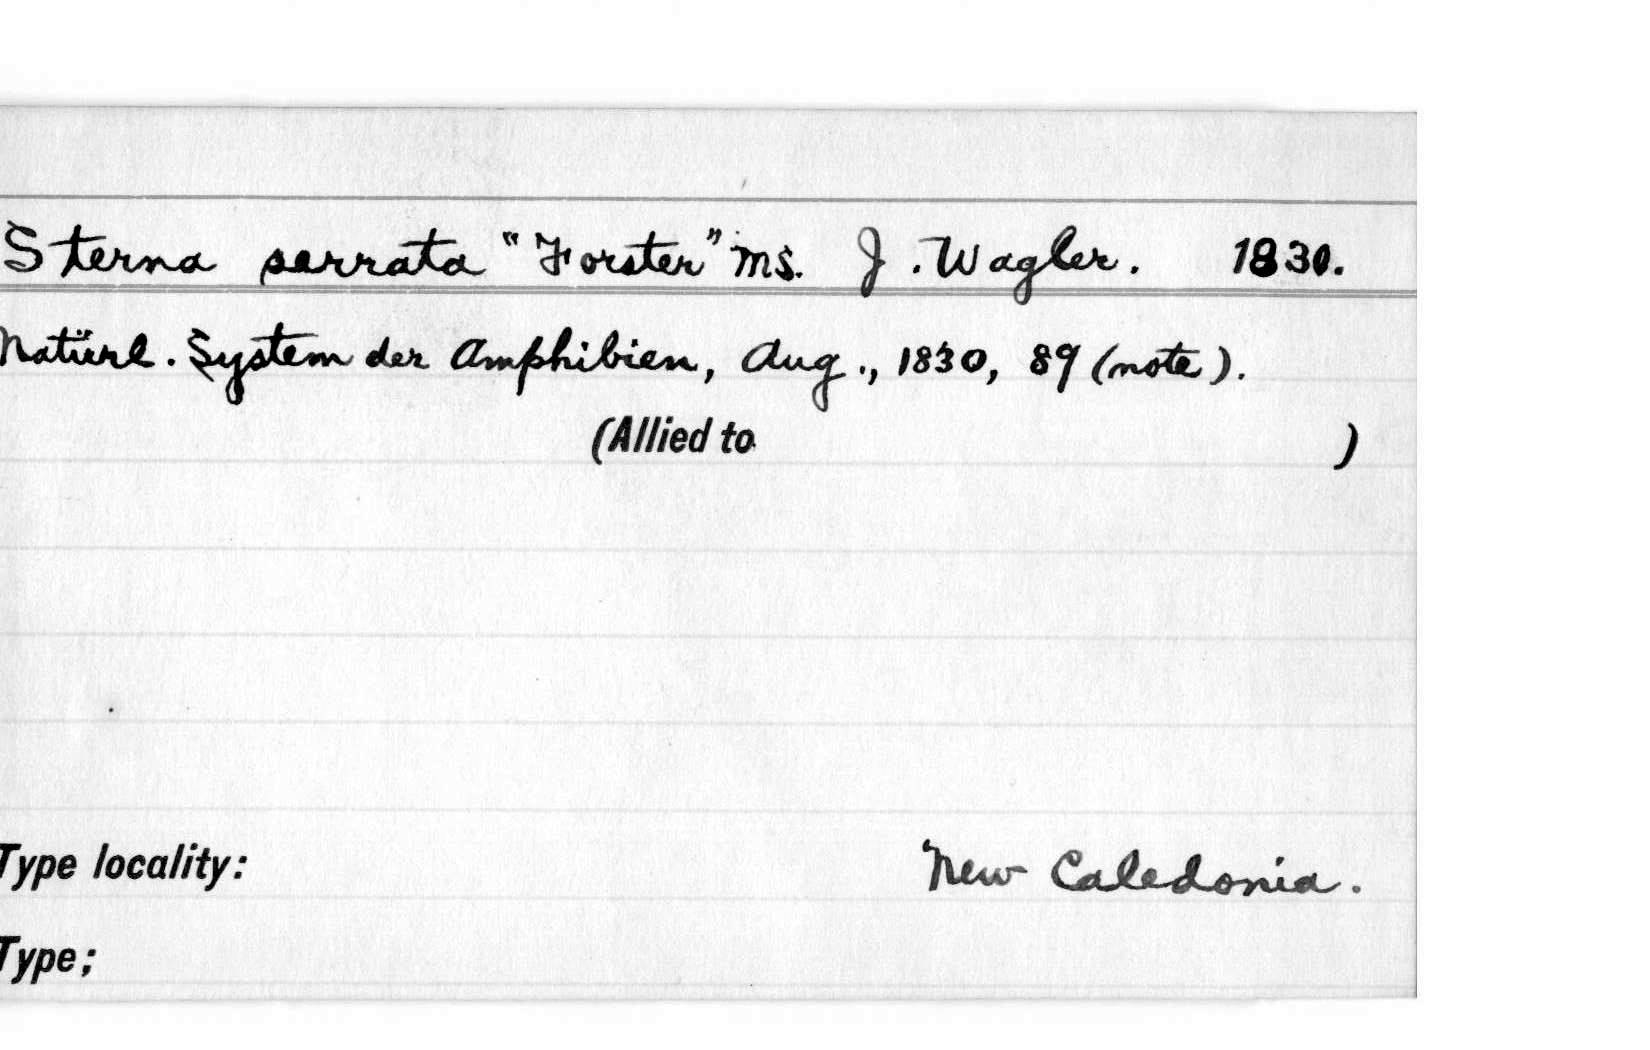 Sterna serrata "Forster" ms. J. Wagler. 1830.
Natürl. System der Amphibien, Aug., 1830, 89 (note).
(Allied to )
Type locality: New Caledonia.
Type;